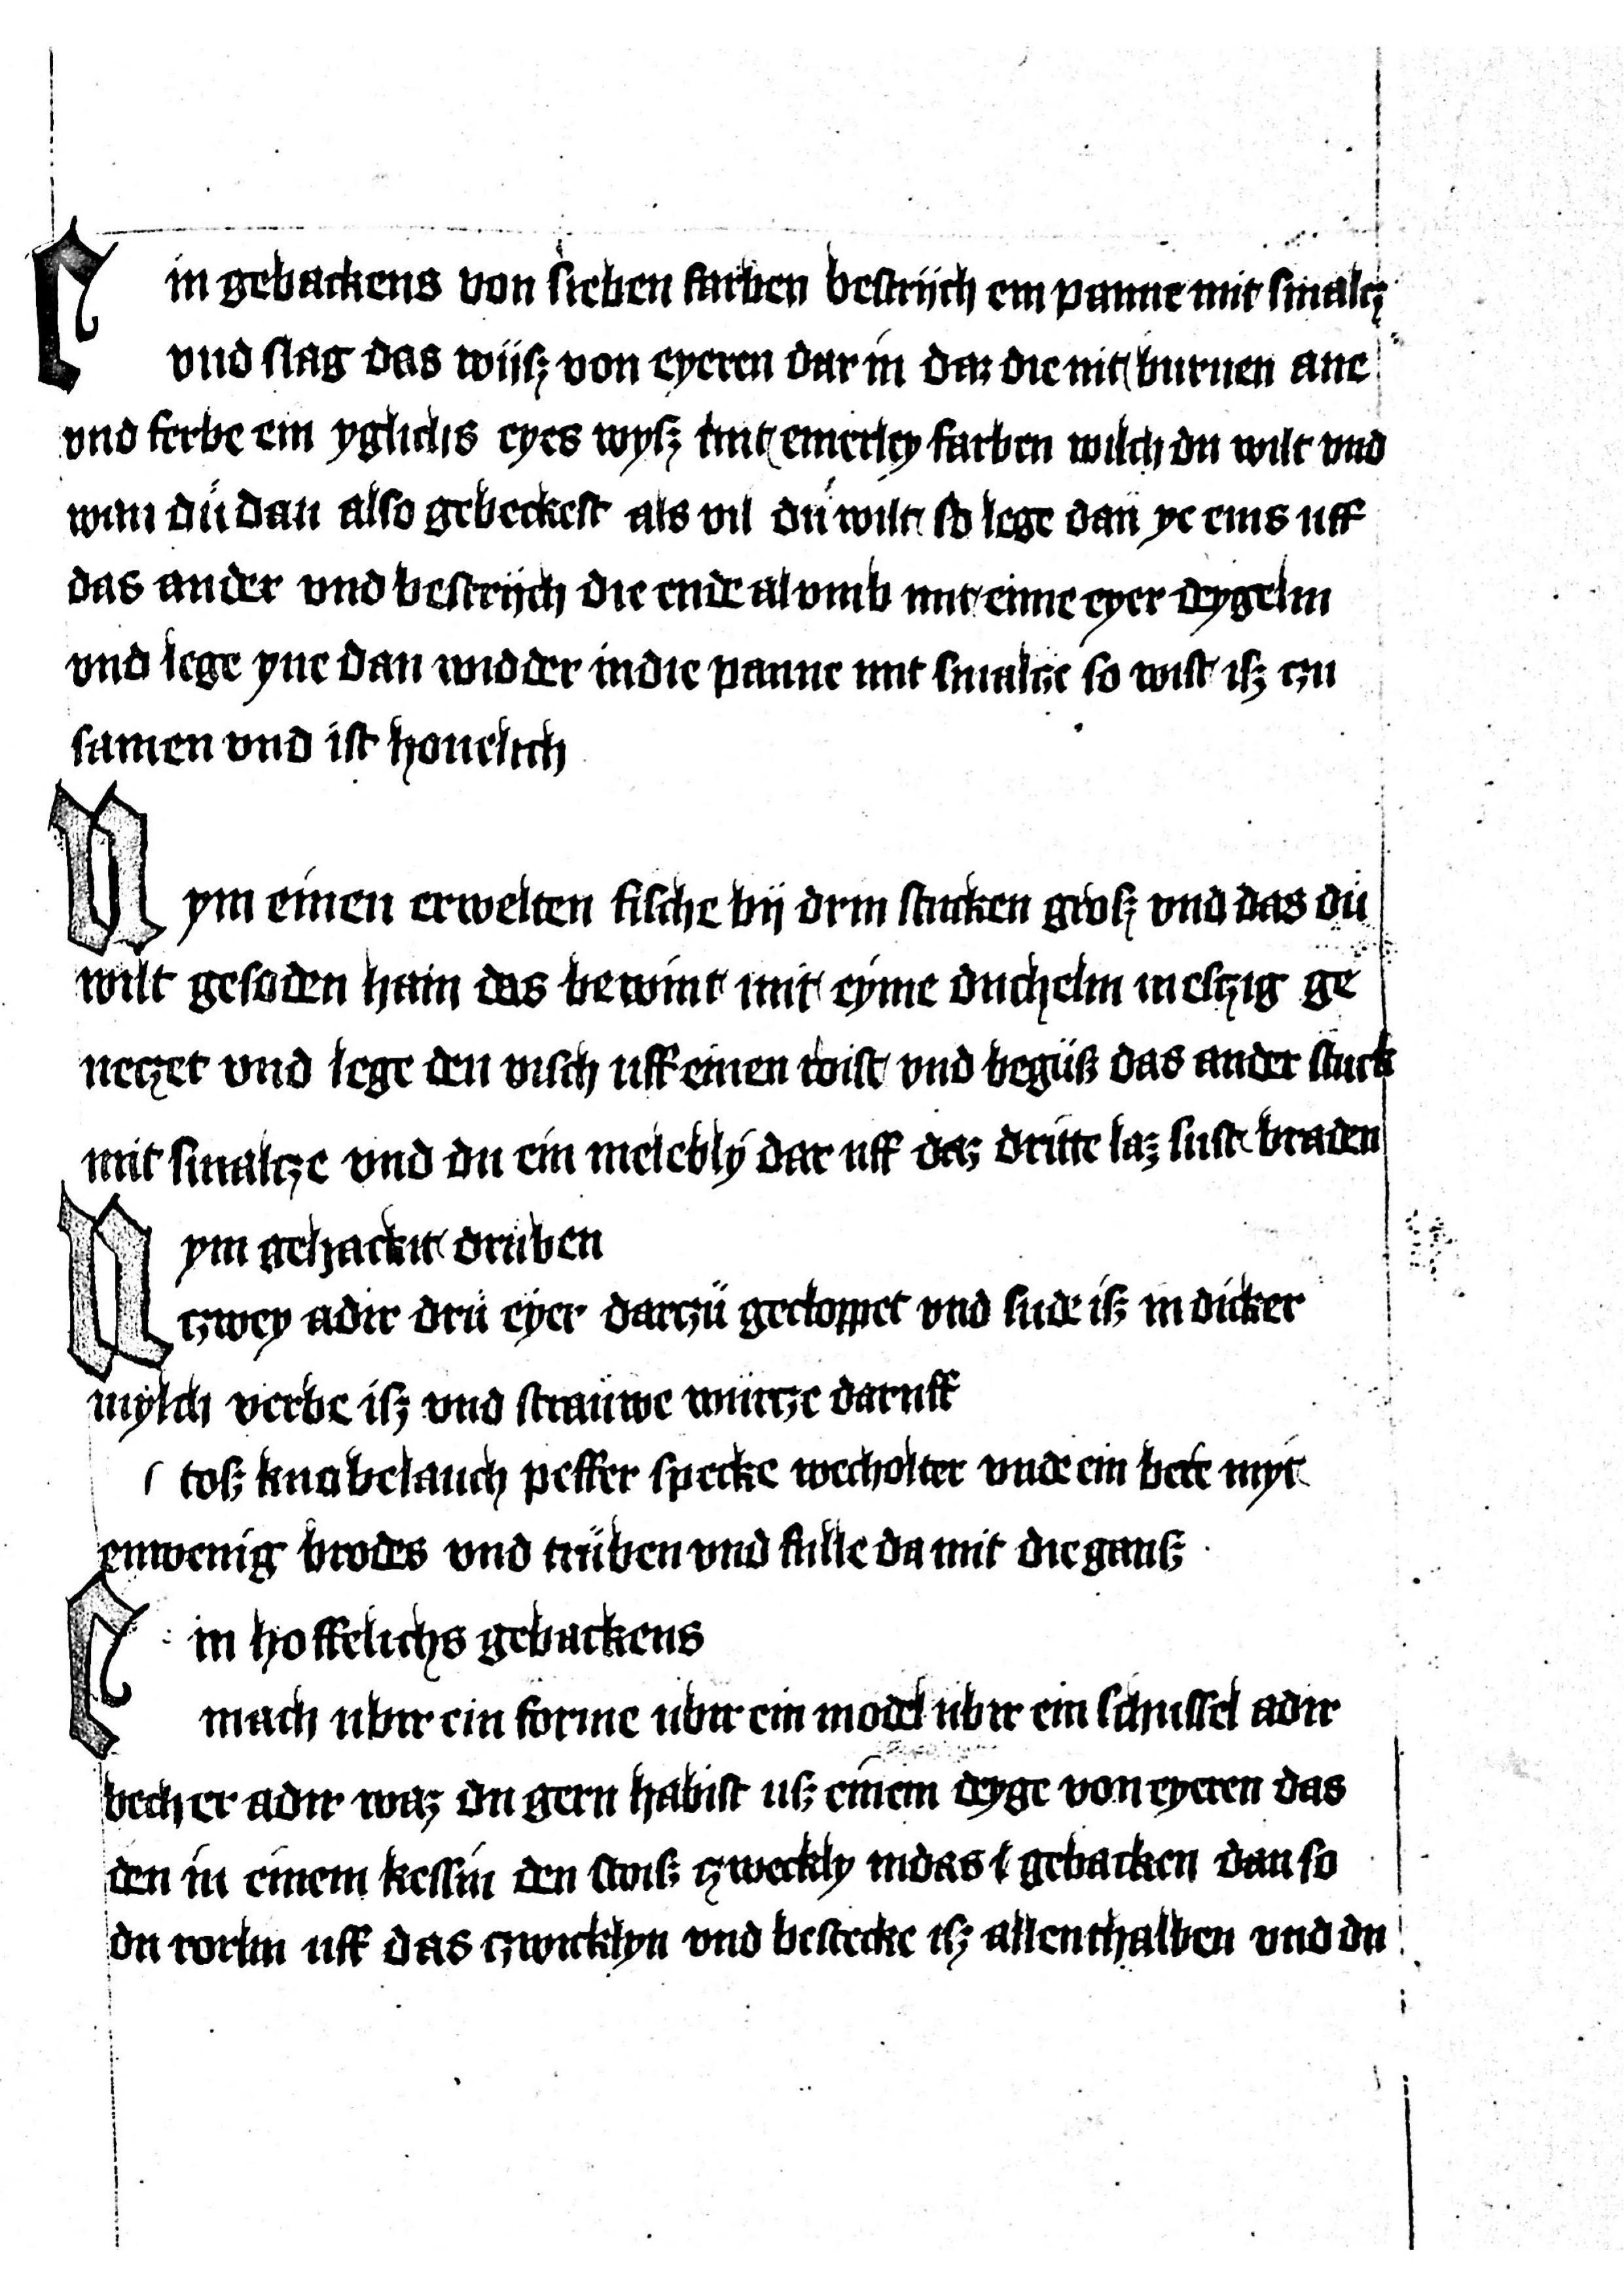 Ein gebackens von sieben farben bestrijch ein panne mit smalcz
vnd slag das wijsz von eyeren dar in daz die nit burnen ane
vnd ferbe ein yglichs eyes wysz mit einerley farben wilch du wilt vnd
wan dü dan also gebeckest als vil dü wilt so lege dan ye eins uff
das ander vnd bestrijch die ende al vmb mit eime eyer deygelin
vnd lege yne dan widder in die panne mit smalcze so wist isz czu
samen vnd ist houelich
Nym einen erwelten fische bij drin stucken grosz vnd das dü
wilt gesoden hain das bewint mit eyme duchelin in eszig ge
neczet vnd lege den visch uff einen roist vnd begüß das ander stuck
mit smalcze vnd du ein melebly dar uff daz dritte laz sust braden
Nym gehackit druben
czwey adir drü eyer darczü gecloppet vnd sude isz in dicker
mylch verbe isz vnd straüwe wurcze daruff
stosz knobelauch peffer specke wecholter vnde ein bere myt
einwenig brodes vnd trüben vnd fulle da mit die gansz
Ein hoffelichs gebackens
mach ubir ein forme ubir ein model ubir ein schussel adir
becher adir waz du gern habist usz einem deyge von eyeren das
den in einem kessin den stoisz czweckly in das gebacken dan so
du rorlin uff das czwicklyn vnd bestecke isz allenthalben vnd du